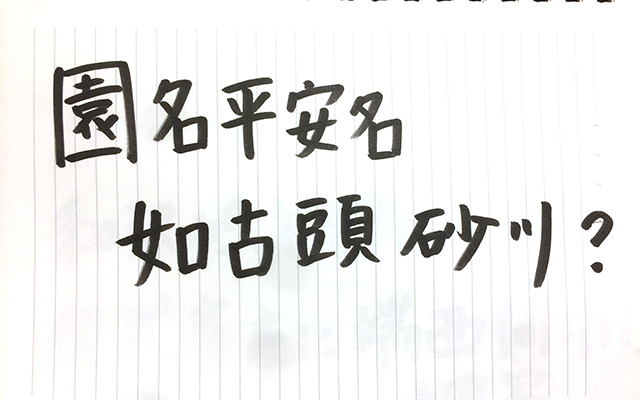 園名平安名
如古頭 砂川?